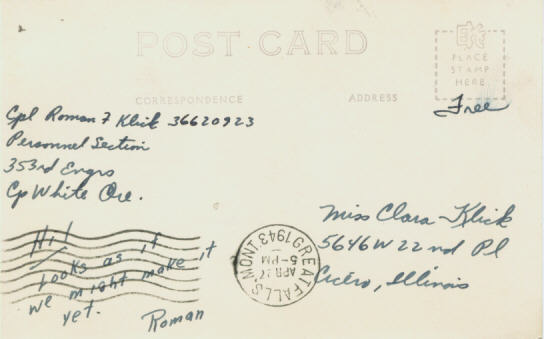 POST CARD
PLACE
STAMP
HERE
CORRESPONDENCE
ADDRESS
Free
Cpl Roman F Klick 36620923
Personnel Section
353rd Engrs
Cp White Ore.
Hi!
Looks as if
we might make it
yet.
Roman
GREAT FALLS MONT.
APR 27
5-PM
1943
Miss Clara Klick
5646 W 22nd Pl
Cicero, Illinois